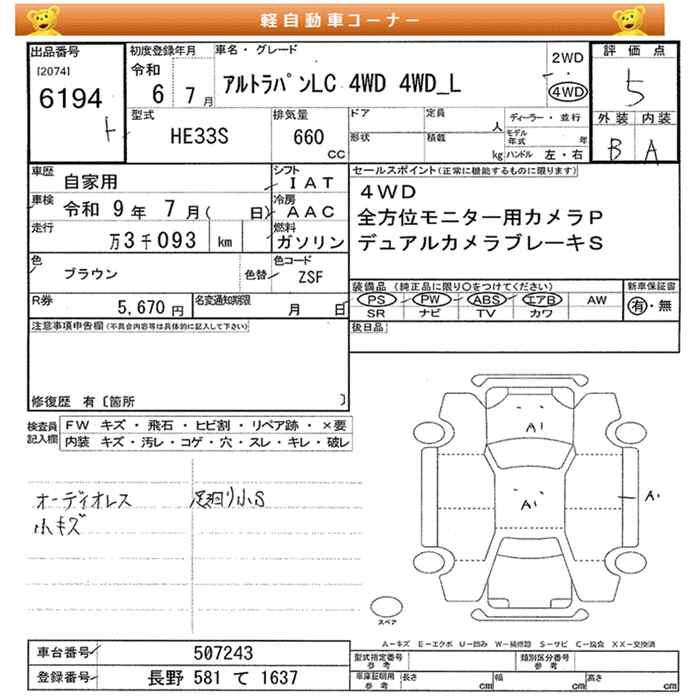 軽自動車コーナー
出品番号
[2074]
6194
ト
初度登録年月
令和
6 7月
車名・グレード
アルトラパンLC 4WD 4WD_L
2WD
・
4WD
評価点
5
外装 内装
B A
型式
HE33S
排気量
660
CC
ドア
定員
人
形状
積載
kg
ディーラー・並行
モデル年式 年
ハンドル 左・右
車歴
自家用
シフト
IAT
車検
令和 9年 7月( 日)
冷房
AAC
走行
万3千093 km
燃料
ガソリン
色
ブラウン
色替
色コード
ZSF
R券
5,670円
名変通知期限
月 日
セールスポイント(正常に機能するものに限ります)
4WD
全方位モニター用カメラP
デュアルカメラブレーキS
装備品 (純正品に限り○をつけてください)
PS PW ABS エアB AW
SR ナビ TV カワ
新車保証書
有・無
後日品
注意事項申告欄(不具合内容等は具体的に記入して下さい)
修復歴 有〔箇所 〕
検査員記入欄
FW キズ・飛石・ヒビ割・リペア跡・×要
内装 キズ・汚レ・コゲ・穴・スレ・キレ・破レ
オーディオレス
小キズ
足廻り小S
A1
A1
A1
スペア
A-キズ E-エクボ U-凹み W-補修跡 S-サビ C-腐食 XX-交換済
車台番号
507243
登録番号
長野 581 て 1637
型式指定番号
参考
類別区分番号
参考
車庫証明用
参考
長さ cm
幅 cm
高さ cm